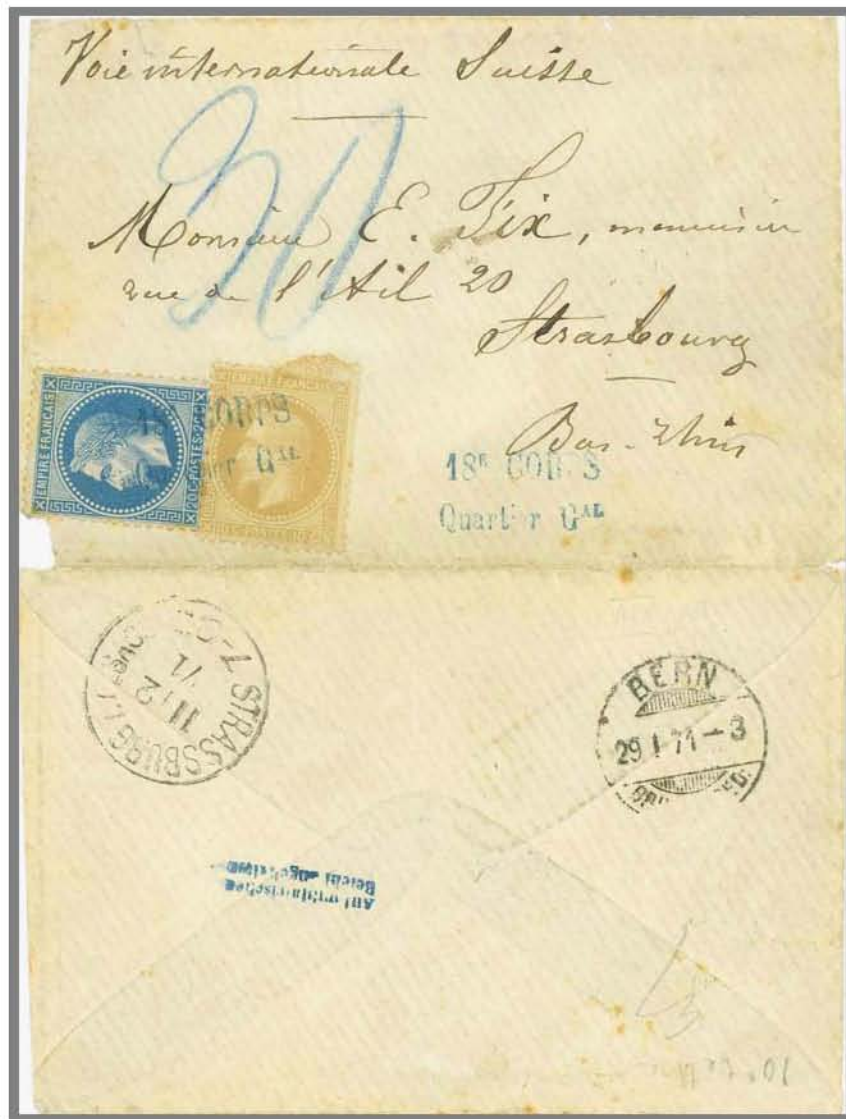 Voie internationale Suisse
20
Monsieur E. Fix, menuisier
rue de l'Ail 20
Strasbourg
Bas-Rhin
EMPIRE FRANÇAIS
20 C POSTES 20 C
EMPIRE FRANÇAIS
10 C POSTES 10 C
18E CORPS
Quartier GAL
18E CORPS
Quartier GAL
STRASSBURG
11 2
71
BERN
29 I 71 - 3
Auf militärischen
Befehl